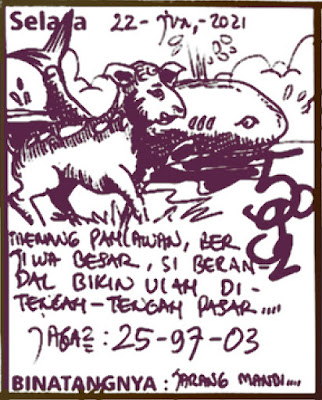 Selasa 22-Jun,-2021
MENANG PAHLAWAN, BER
JIWA BESAR, SI BERAN-
DAL BIKIN ULAH DI-
TENGAH-TENGAH PASAR....
JAGA2 : 25-97-03
BINATANGNYA : JARANG MANDI....